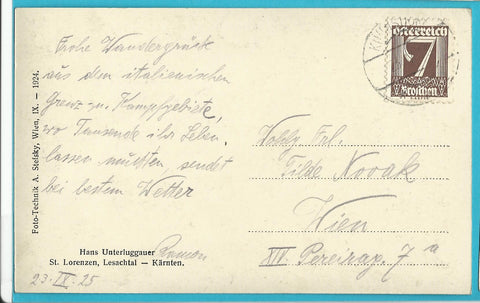 Frohe Wandergrüße
aus dem italienischen
Grenz u. Kampfgebiete,
wo Tausende ihr Leben
lassen mußten, sendet
bei bestem Wetter
Hans Unterluggauer
St. Lorenzen, Lesachtal — Kärnten.
23. IX. 25
Foto-Technik A. Stefsky, Wien, IX. — 1924.
Österreich
7
Groschen
Frl.
Tilde Novak
Wien
XIV. Pereirag. 7a